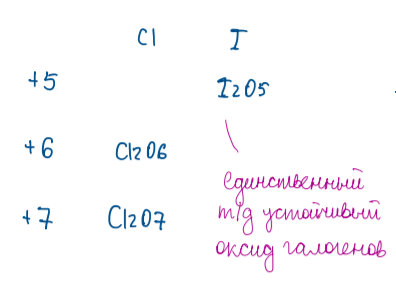 Cl I
+5 I2O5
+6 Cl2O6
+7 Cl2O7
единственный
т/д устойчивый
оксид галогенов